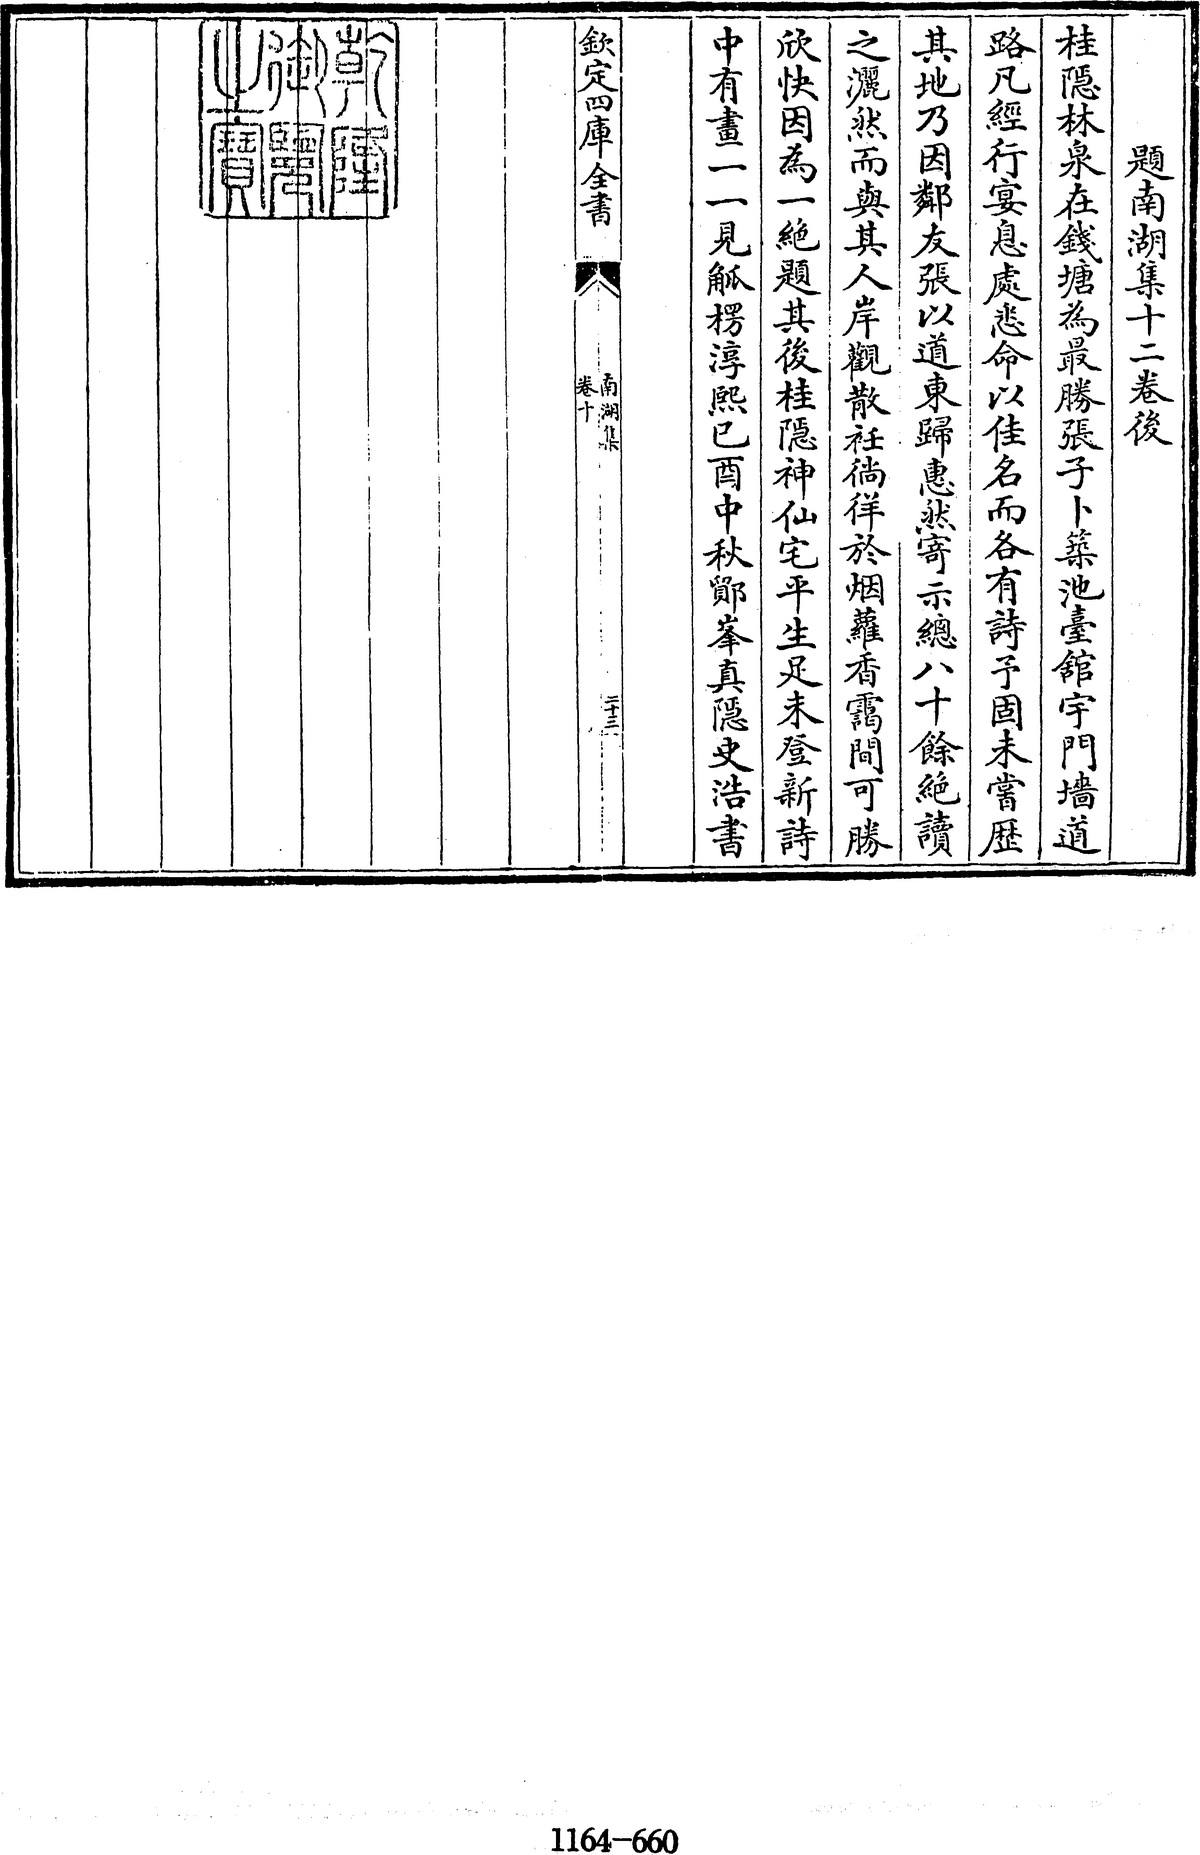 題南湖集十二卷後
桂隱林泉在錢塘為最勝張子卜築池臺舘宇門墻道
路凡經行宴息處悉命以佳名而各有詩予固未嘗歴
其地乃因鄰友張以道東歸惠然寄示總八十餘絶讀
之灑然而與其人岸觀散衽徜徉於烟蘿香靄間可勝
欣快因為一絶題其後桂隱神仙宅平生足未登新詩
中有畫一一見觚楞淳熙已酉中秋鄮峯真隱史浩書
欽定四庫全書
南湖集
卷十
二十三
乾隆
御覽
之寶
1164-660